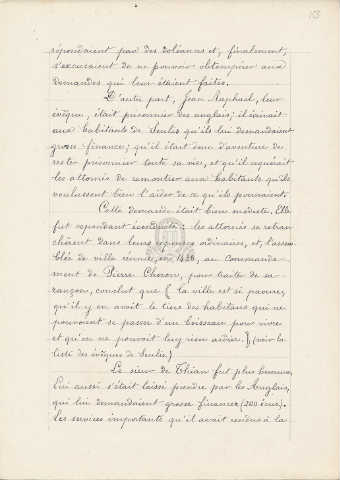 153
répondaient par des doléances et, finalement,
s'excusaient de ne pouvoir obtempérer aux
demandes qui leur étaient faites.
D'autre part, Jean Raphael, leur
évêque, était prisonnier des anglais; il écrivait
aux habitants de Senlis qu'ils lui demandaient
grosse finance; qu'il était donc d'aventure de
rester prisonnier toute sa vie, et qu'il requérait
les attornés de remontrer aux habitants qu'ils
voulussent bien l'aider de ce qu'ils pourraient.
Cette demande était bien modeste. Elle
fut cependant éconduite: les attornés se retran
chèrent dans leurs réponses ordinaires, et, l'assem
blée de ville réunie, en 1436, au commande-
ment de Pierre Choron, pour traiter de sa
rançon, conclut que (la ville est si pauvre,
qu'il y en avait le tiers des habitans qui ne
pouvoient se passer d'un boisseau pour vivre
et qu'on ne pouvoit luy rien aidier.) (voir la
liste des évêques de Senlis)
Le sieur de Thian fut plus heureux.
Lui aussi s'était laissé prendre par les Anglais,
qui lui demandaient grosse finance (200 écus).
Les services importants qu'il avait rendus à la